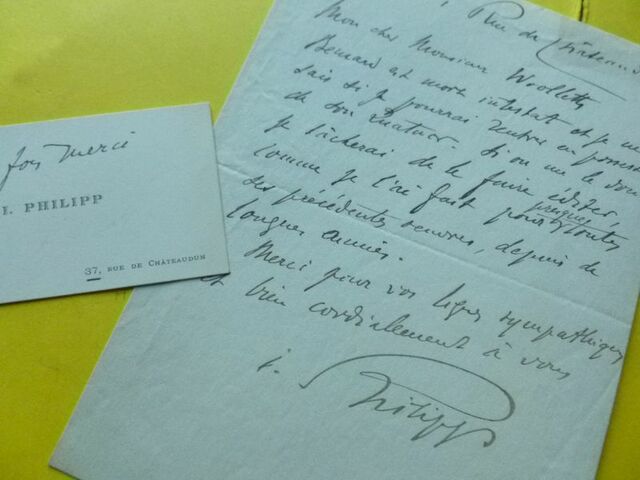 fois merci
I. PHILIPP
37, RUE DE CHÂTEAUDUN
Rue de Châteaudun
Mon cher Monsieur Woollett
Bernard est mort intestat et je ne
sais si je pourrai rentrer en possess
de son Quatuor. Si on me le don
je tâcherai de le faire éditer
comme je l'ai fait pour presque toutes
ses précédentes oeuvres, depuis de
longues années.
Merci pour vos lignes sympathiques
et bien cordialement à vous
i. Philipp